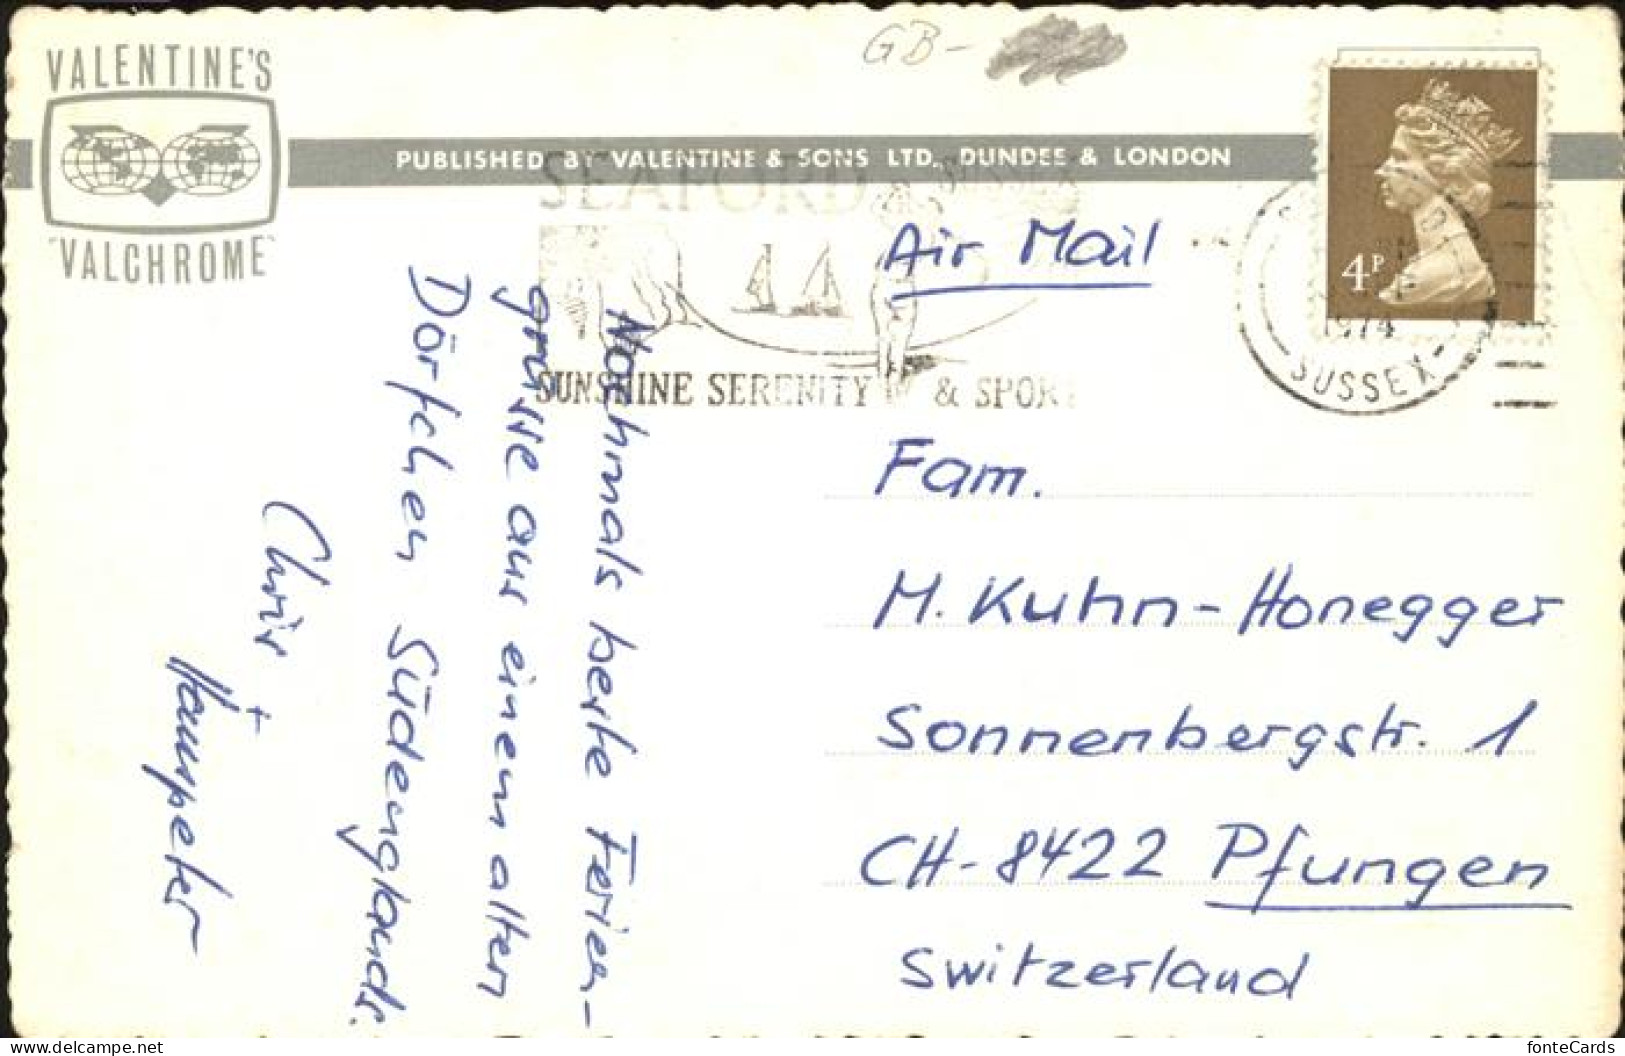 GB-
VALENTINE'S
"VALCHROME"
PUBLISHED BY VALENTINE & SONS LTD., DUNDEE & LONDON
SEAFORD SUSSEX
SUNSHINE SERENITY & SPORT
4P
1974
SUSSEX
Air Mail
Nochmals beste Ferien-
grüsse aus einem alten
Dörfchen Südenglands.
Chris
+
Hanspeter
Fam.
M. Kuhn-Honegger
Sonnenbergstr. 1
CH-8422 Pfungen
Switzerland
fonteCards